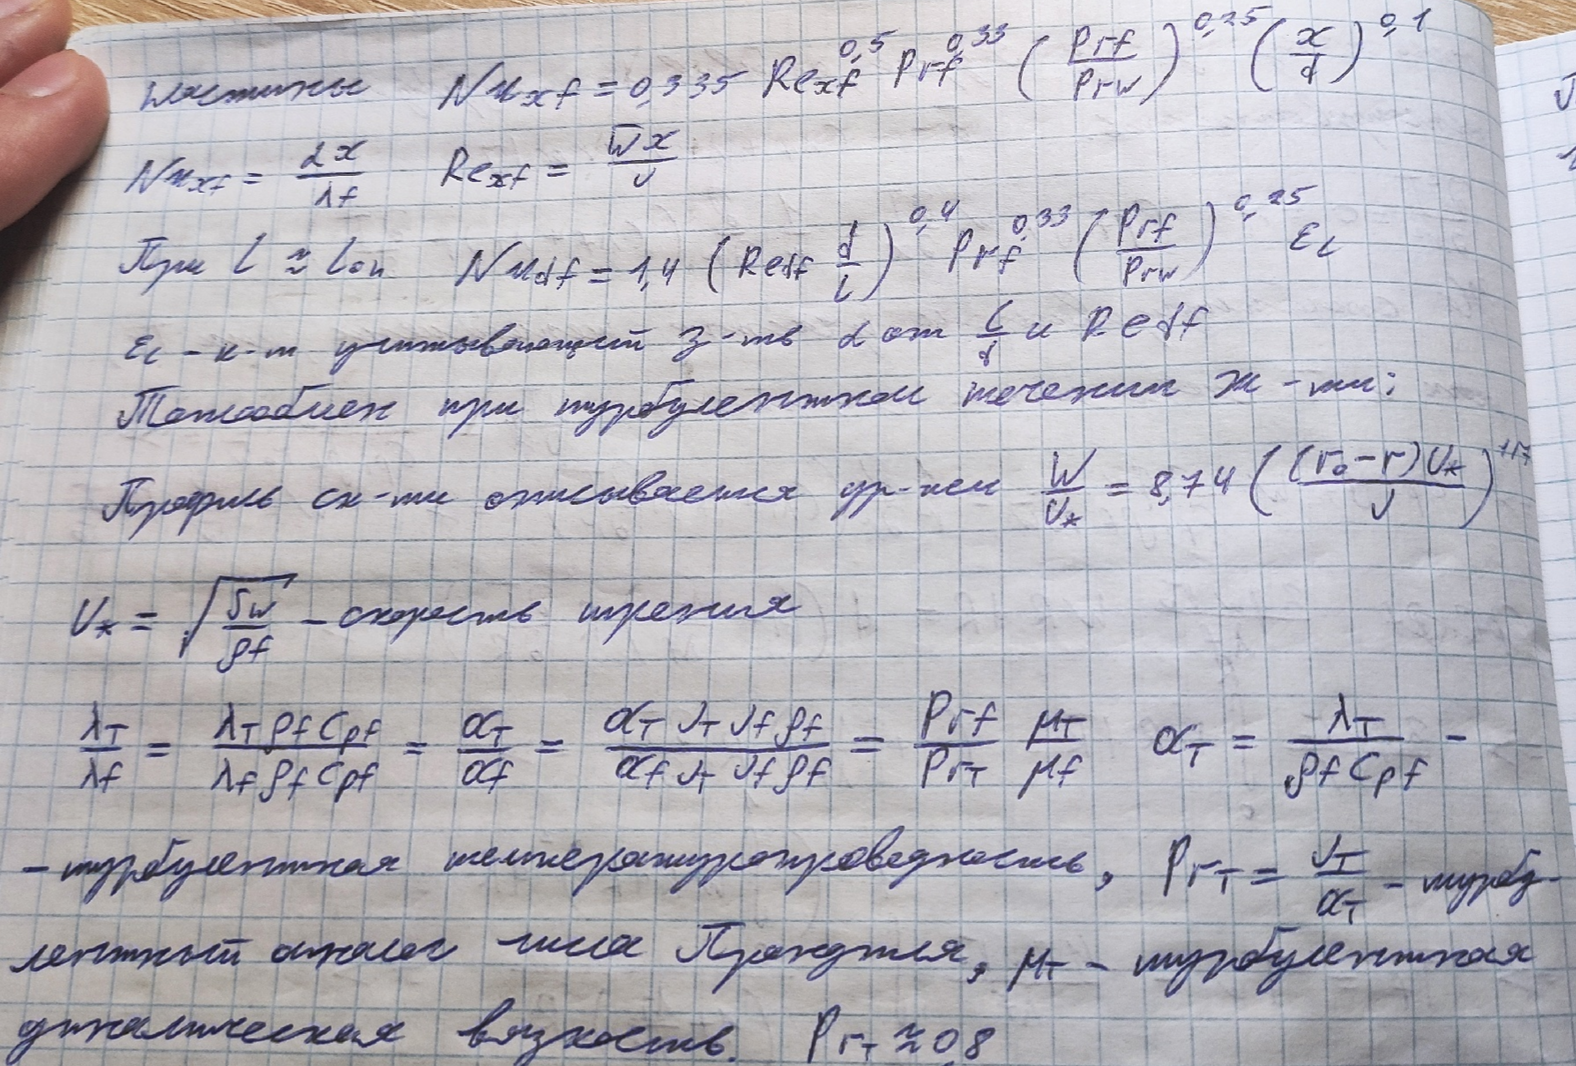 пластины Nu_xf = 0,335 Re_xf^0,5 Pr_f^0,33 (Prf/Prw)^0,25 (x/d)^0,1
Nu_xf = αx/λf Re_xf = w̅x/ν
При l ≈ lон Nu_df = 1,4 (Re_df d/l)^0,4 Pr_f^0,33 (Prf/Prw)^0,25 ε_l
ε_l - к-т учитывающий з-ть α от l/d и Re df
Теплообмен при турбулентном течении ж-ти:
Профиль ск-ти описывается ур-нем W/υ* = 8,74 ((r₀-r)υ*/ν)^1/7
υ* = √(τw/ρf) - скорость трения
λт/λf = λт ρf Cpf/λf ρf Cpf = aт/af = aт νт νf ρf/af νт νf ρf = Prf/Prт μт/μf aт = λт/ρf Cpf -
- турбулентная температуропроводность, Prт = νт/aт - турбу-
лентный аналог числа Прандтля, μт - турбулентная
динамическая вязкость. Prт ≈ 0,8